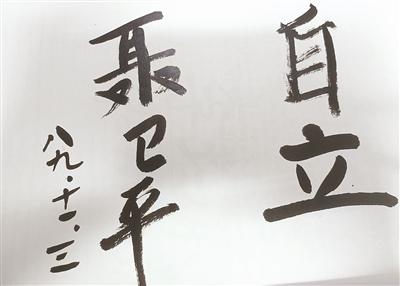 自立
聂卫平
八九·十一·三